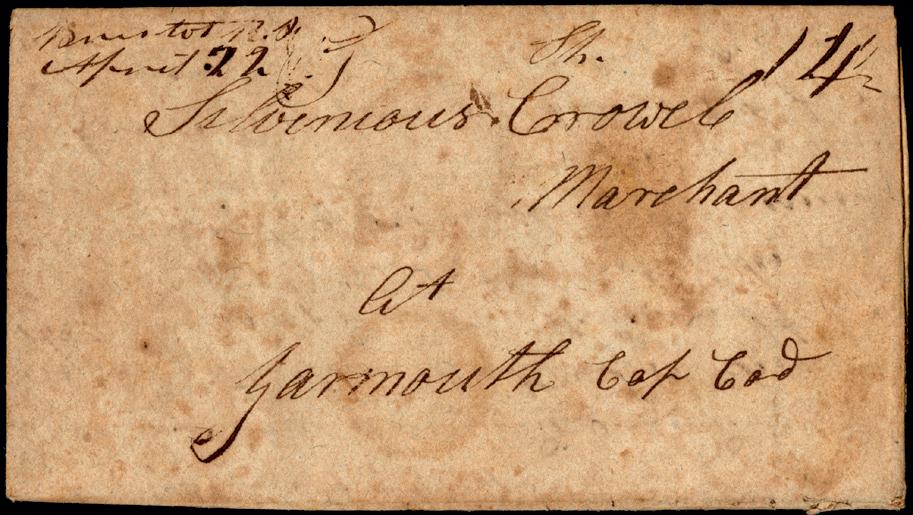 Bristol R.I.
April 22
Sh. 14½
Silvenious Crowel
Marchant
At
Yarmouth Cap Cod